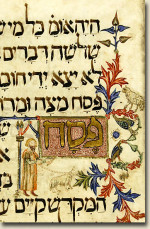 היה אומ' כל מי
שלשה דברים
לא יצא ידי
פסח מצה ומרור
פסח
המקדש קיים